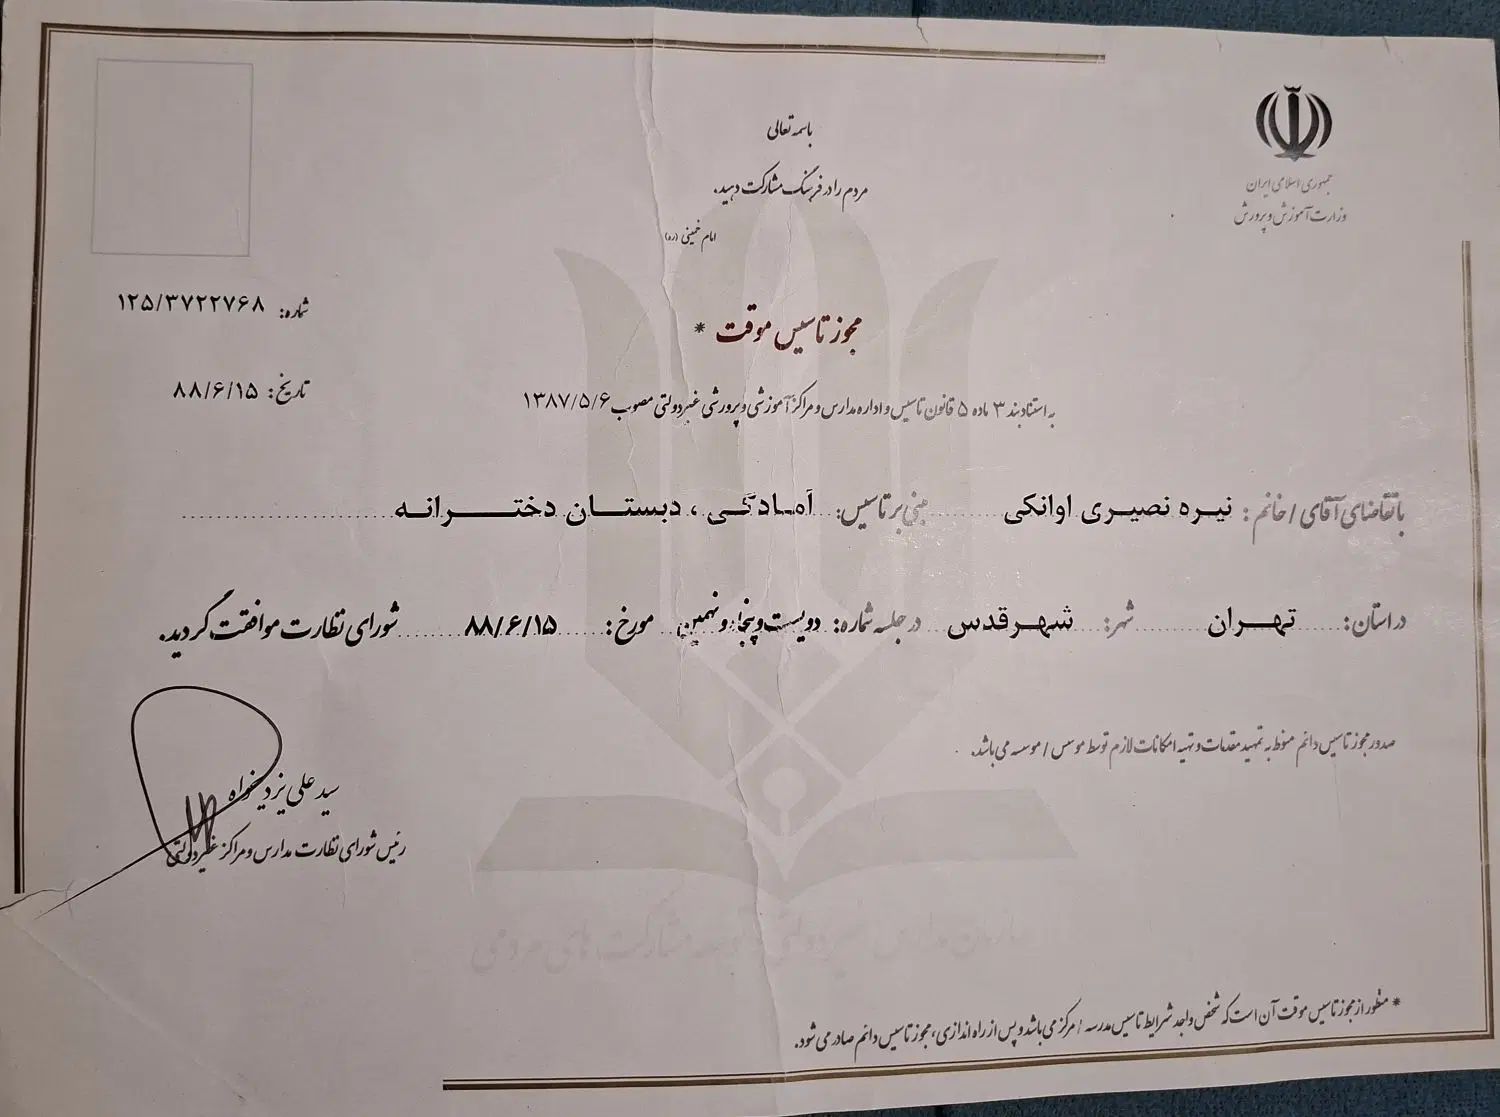 باسمه تعالی
مردم را در فرهنگ مشارکت دهید.
امام خمینی (ره)
جمهوری اسلامی ایران
وزارت آموزش و پرورش
شماره: ۱۲۵/۳۷۲۲۷۶۸
تاریخ: ۸۸/۶/۱۵
مجوز تاسیس موقت *
به استناد بند ۳ ماده ۵ قانون تاسیس و اداره مدارس و مراکز آموزشی و پرورشی غیردولتی مصوب ۱۳۸۷/۵/۶
با تقاضای آقای / خانم: نیره نصیری اوانکی مبنی بر تاسیس: آمادگی، دبستان دخترانه
در استان: تهران شهر: شهرقدس در جلسه شماره: دویست و پنجاه و نهمین مورخ: ۸۸/۶/۱۵ شورای نظارت موافقت گردید.
صدور مجوز تاسیس دائم منوط به تمهید مقدمات و تهیه امکانات لازم توسط موسس / موسسه می باشد.
سید علی یزدیخواه
رئیس شورای نظارت مدارس و مراکز غیردولتی
سازمان مدارس غیردولتی و توسعه مشارکت های مردمی
* منظور از مجوز تاسیس موقت آن است که شخص واجد شرایط تاسیس مدرسه / مرکز می باشد و پس از راه اندازی، مجوز تاسیس دائم صادر می شود.